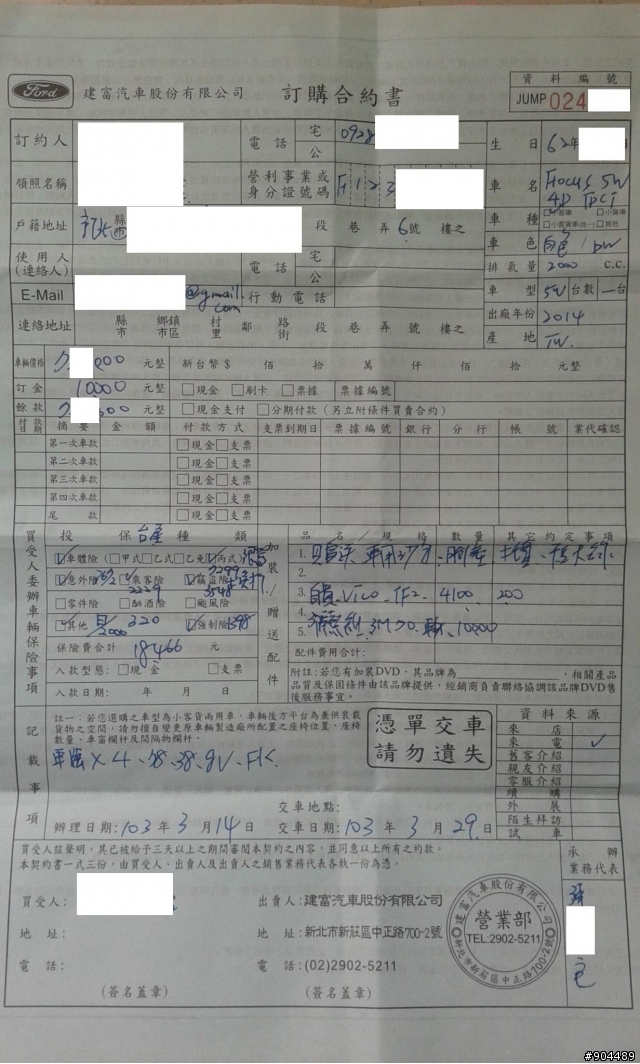 Ford 建富汽車股份有限公司 訂購合約書
資料編號
JUMP 024
訂約人 電話 宅 0928 公 生日 62年
領照名稱 營利事業或身分證號碼 F123 車名 Focus 5W 4D TDCi
戶籍地址 縣市 段 巷 弄 6號 樓之 車種 □客車 □小貨車 □小客貨車(台一) □其他
使用人(連絡人) 電話 宅 公 車色 白色
排氣量 2000 C.C.
E-Mail @gmail.com 行動電話 車型 5W 台數 一台
連絡地址 縣市 鄉鎮市區 村里 鄰 路街 段 巷 弄 號 樓之 出廠年份 2014
產地 TW.
車輛價格 元整 新台幣$ 佰 拾 萬 仟 佰 拾 元整
訂金 10000 元整 □現金 □刷卡 □票據 票據編號
餘款 元整 □現金支付 □分期付款(另立附條件買賣合約)
付款日期 摘要 金額 付款方式 支票到期日 票據編號 銀行 分行 帳號 業代確認
第一次車款 □現金□支票
第二次車款 □現金□支票
第三次車款 □現金□支票
第四次車款 □現金□支票
尾款 □現金□支票
買受人委辦車輛保險事項
投保 台產 種類
☑車體險(□甲式□乙式□乙免☑丙式)
☑意外險 ☑乘客險 2229 ☑竊盜險 3548
□零件險 □酗酒險 □颱風險
☑其他 2000 320 ☑強制險 1398
保險費合計 18466 元
入款型態 □現金 □支票
入款日期: 年 月 日
加裝/贈送配件
品名/規格 數量 其它約定事項
1.
2.
3. Vico TF2 4100 200
4.
5. 3M 70 10000
配件費用合計:
附註:若您有加裝DVD,其品牌為 ,相關產品品質及保固條件由該品牌提供,經銷商負責聯絡協調該品牌DVD售後服務事宜。
記載事項
註一:若您選購之車型為小客貨兩用車,車輛後方平台為兼供裝載貨物之空間,請勿擅自變更原車輛製造廠所配置之座椅位置、座椅數量、車窗欄杆及間隔物欄杆。
憑單交車
請勿遺失
X4
資料來源
來店
來電 ✓
舊客介紹
親友介紹
零服介紹
續購
外展
陌生拜訪
試車
交車地點:
辦理日期:103年3月14日 交車日期:103年3月29日
買受人茲聲明,其已被給予三天以上之期間審閱本契約之內容,並同意以上所有之約款。
本契約書一式三份,由買受人、出賣人及出賣人之銷售業務代表各執一份為憑。
承辦業務代表
買受人: 出賣人:建富汽車股份有限公司
地址: 地址:新北市新莊區中正路700-2號
電話: 電話:(02)2902-5211
(簽名蓋章) (簽名蓋章)
建富汽車股份有限公司
營業部
TEL:2902-5211
新北市新莊區中正路700-2號
#904489